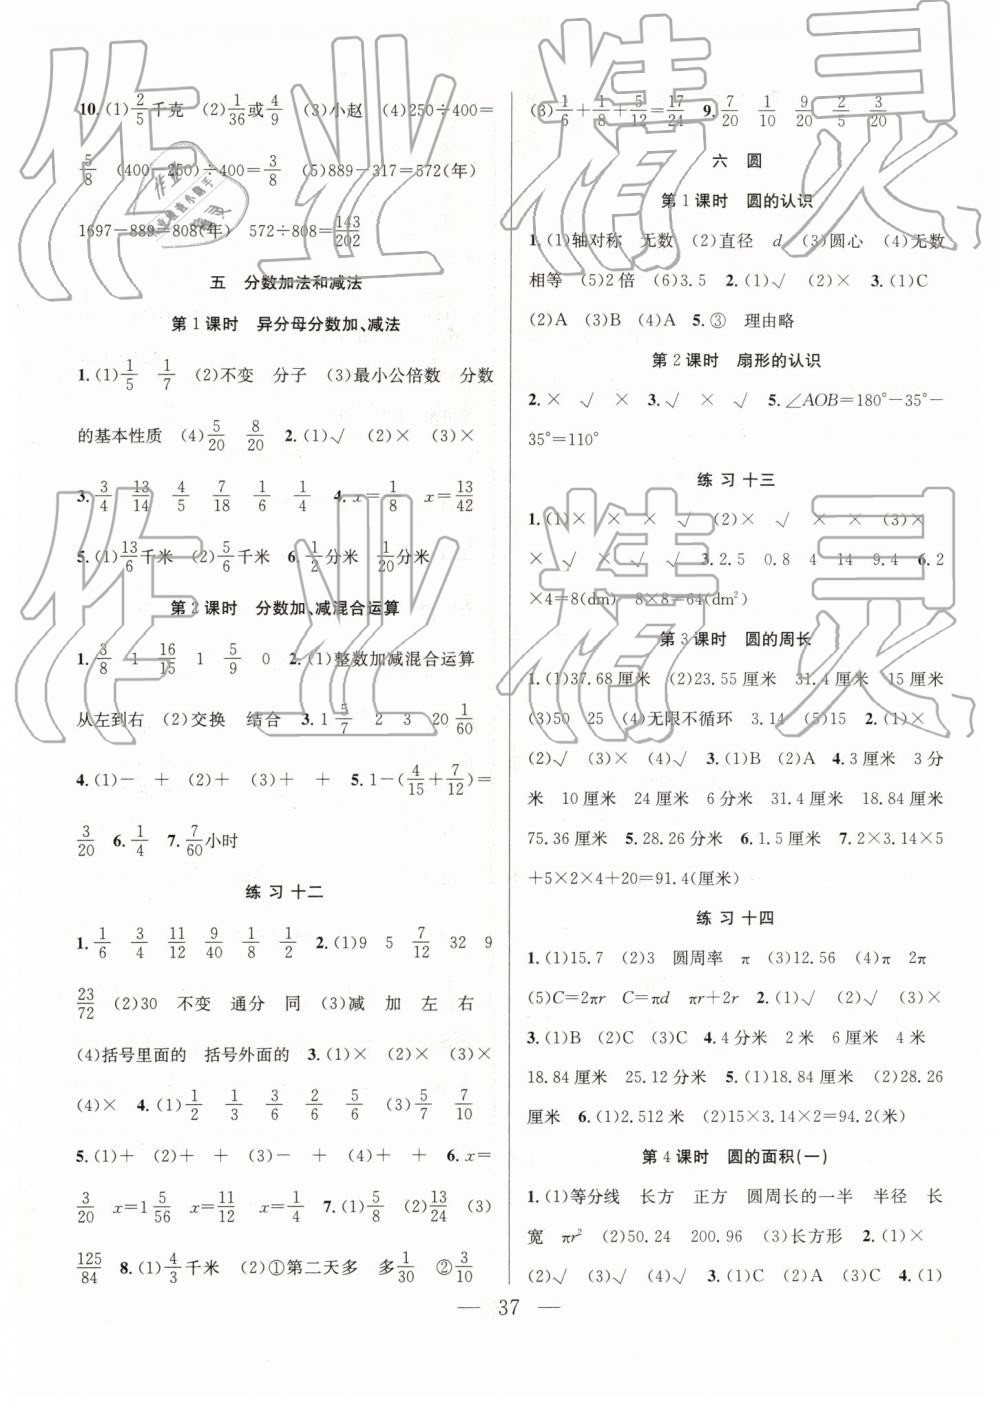 10.(1)2/5千克 (2)1/36或4/9 (3)小赵 (4)250÷400=
5/8 (400-250)÷400=3/8 (5)889-317=572(年)
1697-889=808(年) 572÷808=143/202
五 分数加法和减法
第1课时 异分母分数加、减法
1.(1)1/5 1/7 (2)不变 分子 (3)最小公倍数 分数
的基本性质 (4)5/20 8/20 2.(1)√ (2)× (3)×
3.3/4 13/14 4/5 7/18 1/6 1/6 4.x=1/8 x=13/42
5.(1)13/6千米 (2)5/6千米 6.1/2分米 1/20分米
第2课时 分数加、减混合运算
1.3/8 1 16/15 1 5/9 0 2.(1)整数加减混合运算
从左到右 (2)交换 结合 3.1 5/7 2 3 20 1/60
4.(1)- + (2)+ (3)+ + 5.1-(4/15+7/12)=
3/20 6.1/4 7.7/60小时
练习十二
1.1/6 3/4 11/12 9/40 1/8 1/2 2.(1)9 5 7/12 32 9
23/72 (2)30 不变 通分 同 (3)减 加 左 右
(4)括号里面的 括号外面的 3.(1)× (2)× (3)×
(4)× 4.(1)1/2 1/3 3/6 2/6 5/6 (3)5/7 7/10
5.(1)+ (2)+ (3)- + (4)+ + 6.x=
3/20 x=1 5/56 x=11/12 x=1/4 7.(1)5/8 (2)13/24 (3)
125/84 8.(1)4/3千米 (2)①第二天多 多1/30 ②3/10
(3)1/6+1/8+5/12=17/24 9.7/20 1/10 9/20 2/5 3/20
六 圆
第1课时 圆的认识
1.(1)轴对称 无数 (2)直径 d (3)圆心 (4)无数
相等 (5)2倍 (6)3.5 2.(1)√ (2)× 3.(1)C
(2)A (3)B (4)A 5.③ 理由略
第2课时 扇形的认识
2.× √ × 3.√ × √ 5.∠AOB=180°-35°-
35°=110°
练习十三
1.(1)× × × √ (2)× √ × × (3)×
× √ √ × √ 3.2.5 0.8 4 14 9.4 6.2
×4=8(dm) 8×8=64(dm²)
第3课时 圆的周长
1.(1)37.68厘米 (2)23.55厘米 31.4厘米 15厘米
(3)50 25 (4)无限不循环 3.14 (5)15 2.(1)×
(2)√ (3)× (4)√ 3.(1)B (2)A 4.3厘米 3分
米 10厘米 24厘米 6分米 31.4厘米 18.84厘米
75.36厘米 5.28.26分米 6.1.5厘米 7.2×3.14×5
+5×2×4+20=91.4(厘米)
练习十四
1.(1)15.7 (2)3 圆周率 π (3)12.56 (4)π 2π
(5)C=2πr C=πd πr+2r 2.(1)√ (2)√ (3)×
3.(1)B (2)C (3)C 4.4分米 2米 6厘米 4米
18.84厘米 25.12分米 5.(1)18.84厘米 (2)28.26
厘米 6.(1)2.512米 (2)15×3.14×2=94.2(米)
第4课时 圆的面积(一)
1.(1)等分线 长方 正方 圆周长的一半 半径 长
宽 πr² (2)50.24 200.96 (3)长方形 2.(1)×
(2)√ (3)√ (4)√ 3.(1)C (2)A (3)C 4.(1)
— 37 —
作业精灵
作业精灵